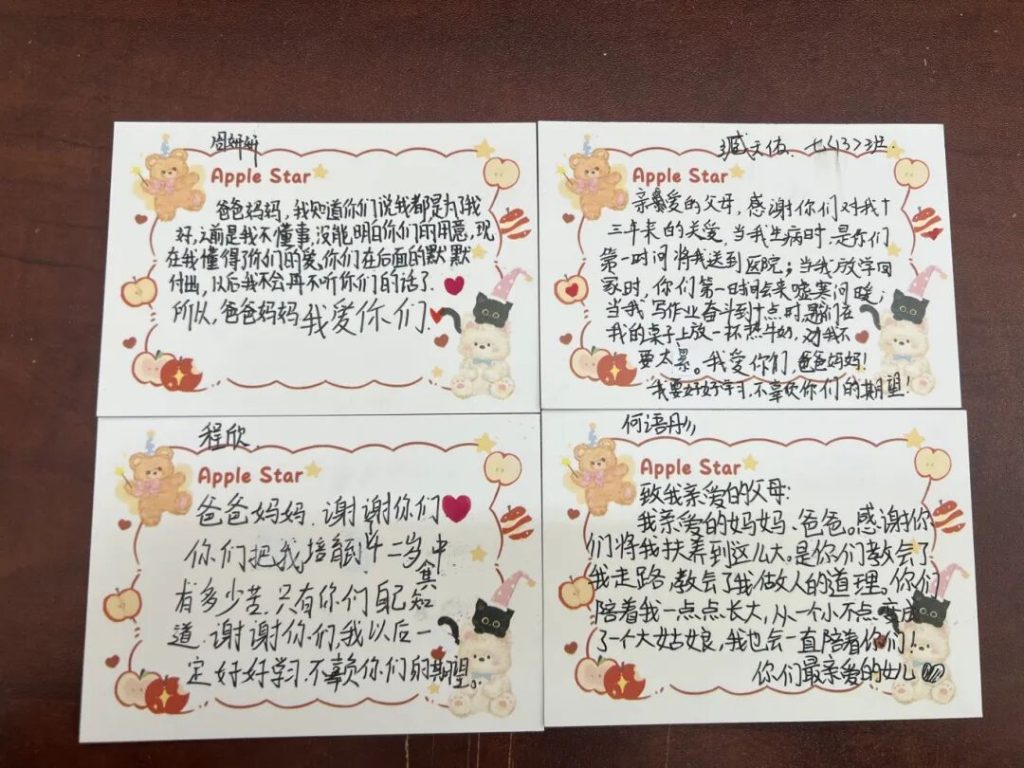 周妍妍
Apple Star
爸爸妈妈,我知道你们说我都是为了我
好,之前是我不懂事,没能明白你们的用意,现
在我懂得了你们的爱,你们在后面的默默
付出,以后我不会再不听你们的话了
所以,爸爸妈妈我爱你们!
臧天佑 七(3)班
Apple Star
亲爱的父母,感谢你们对我十
三年来的关爱,当我生病时,是你们
第一时间将我送到医院;当我放学回
家时,你们第一时间会来嘘寒问暖;
当我写作业奋斗到十点时,是你们在
我的桌子上放一杯热牛奶,劝我不
要太累。我爱你们,爸爸妈妈!
我要好好学习,不辜负你们的期望!
程欣
Apple Star
爸爸妈妈,谢谢你们
你们把我培能到十二岁,其中
有多少苦,只有你们自己知
道,谢谢你们,我以后一
定好好学习,不赖你们的期望。
何语彤
Apple Star
致我亲爱的父母:
我亲爱的妈妈、爸爸。感谢你
们将我扶养到这么大。是你们教会了
我走路,教会了我做人的道理,你们
陪着我一点点长大,从一个小不点变成
了一个大姑娘,我也会一直陪着你们!
你们最亲爱的女儿